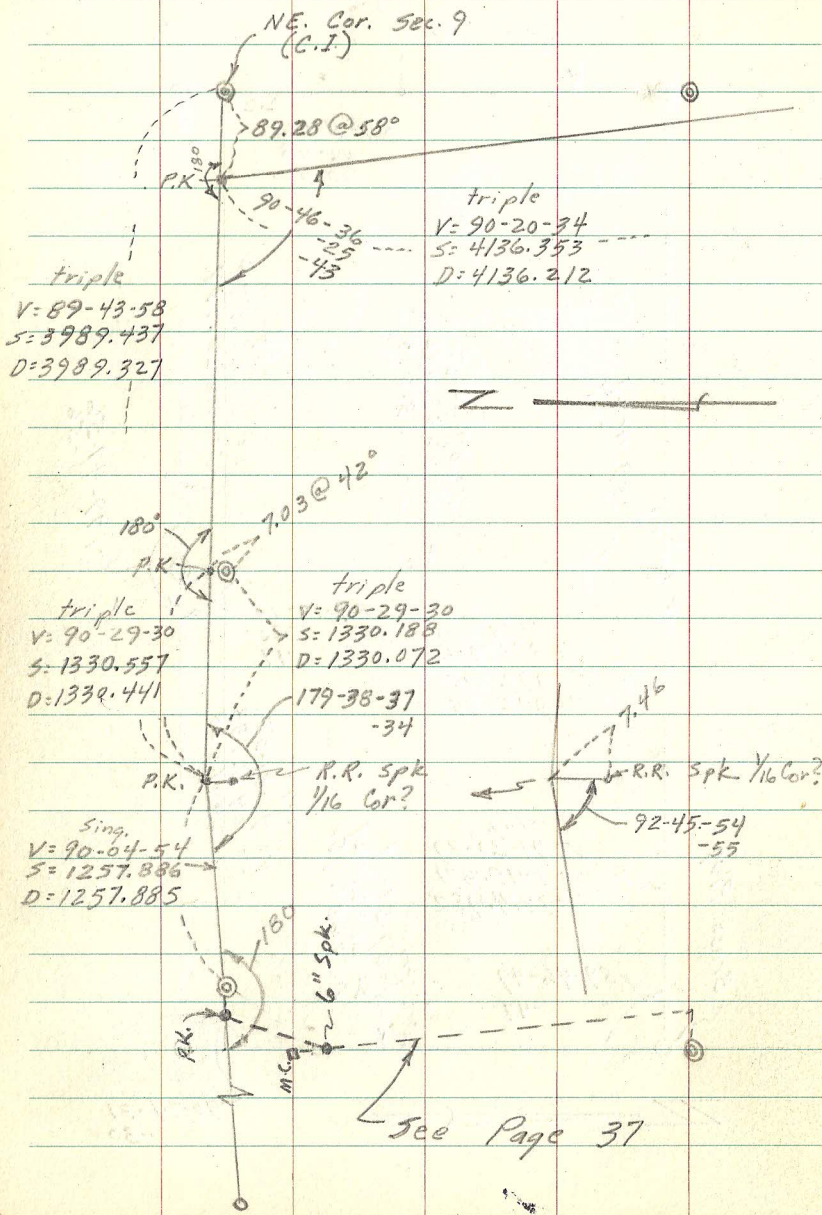 NE. Cor. Sec. 9
(C.I.)
89.28 @ 58°
180
P.K
90-46-36
-25
-43
triple
V= 90-20-34
S= 4136.353
D= 4136.212
triple
V= 89-43-58
S= 3989.437
D= 3989.327
N
7.03 @ 42°
180°
P.K
triple
V= 90-29-30
S= 1330.557
D= 1330.441
triple
V= 90-29-30
S= 1330.188
D= 1330.072
179-38-37
-34
7.46
P.K.
R.R. Spk
1/16 Cor?
R.R. Spk 1/16 Cor?
92-45-54
-55
Sing.
V= 90-04-54
S= 1257.886
D= 1257.885
180
6" Spk.
P.K.
M.C.
See Page 37